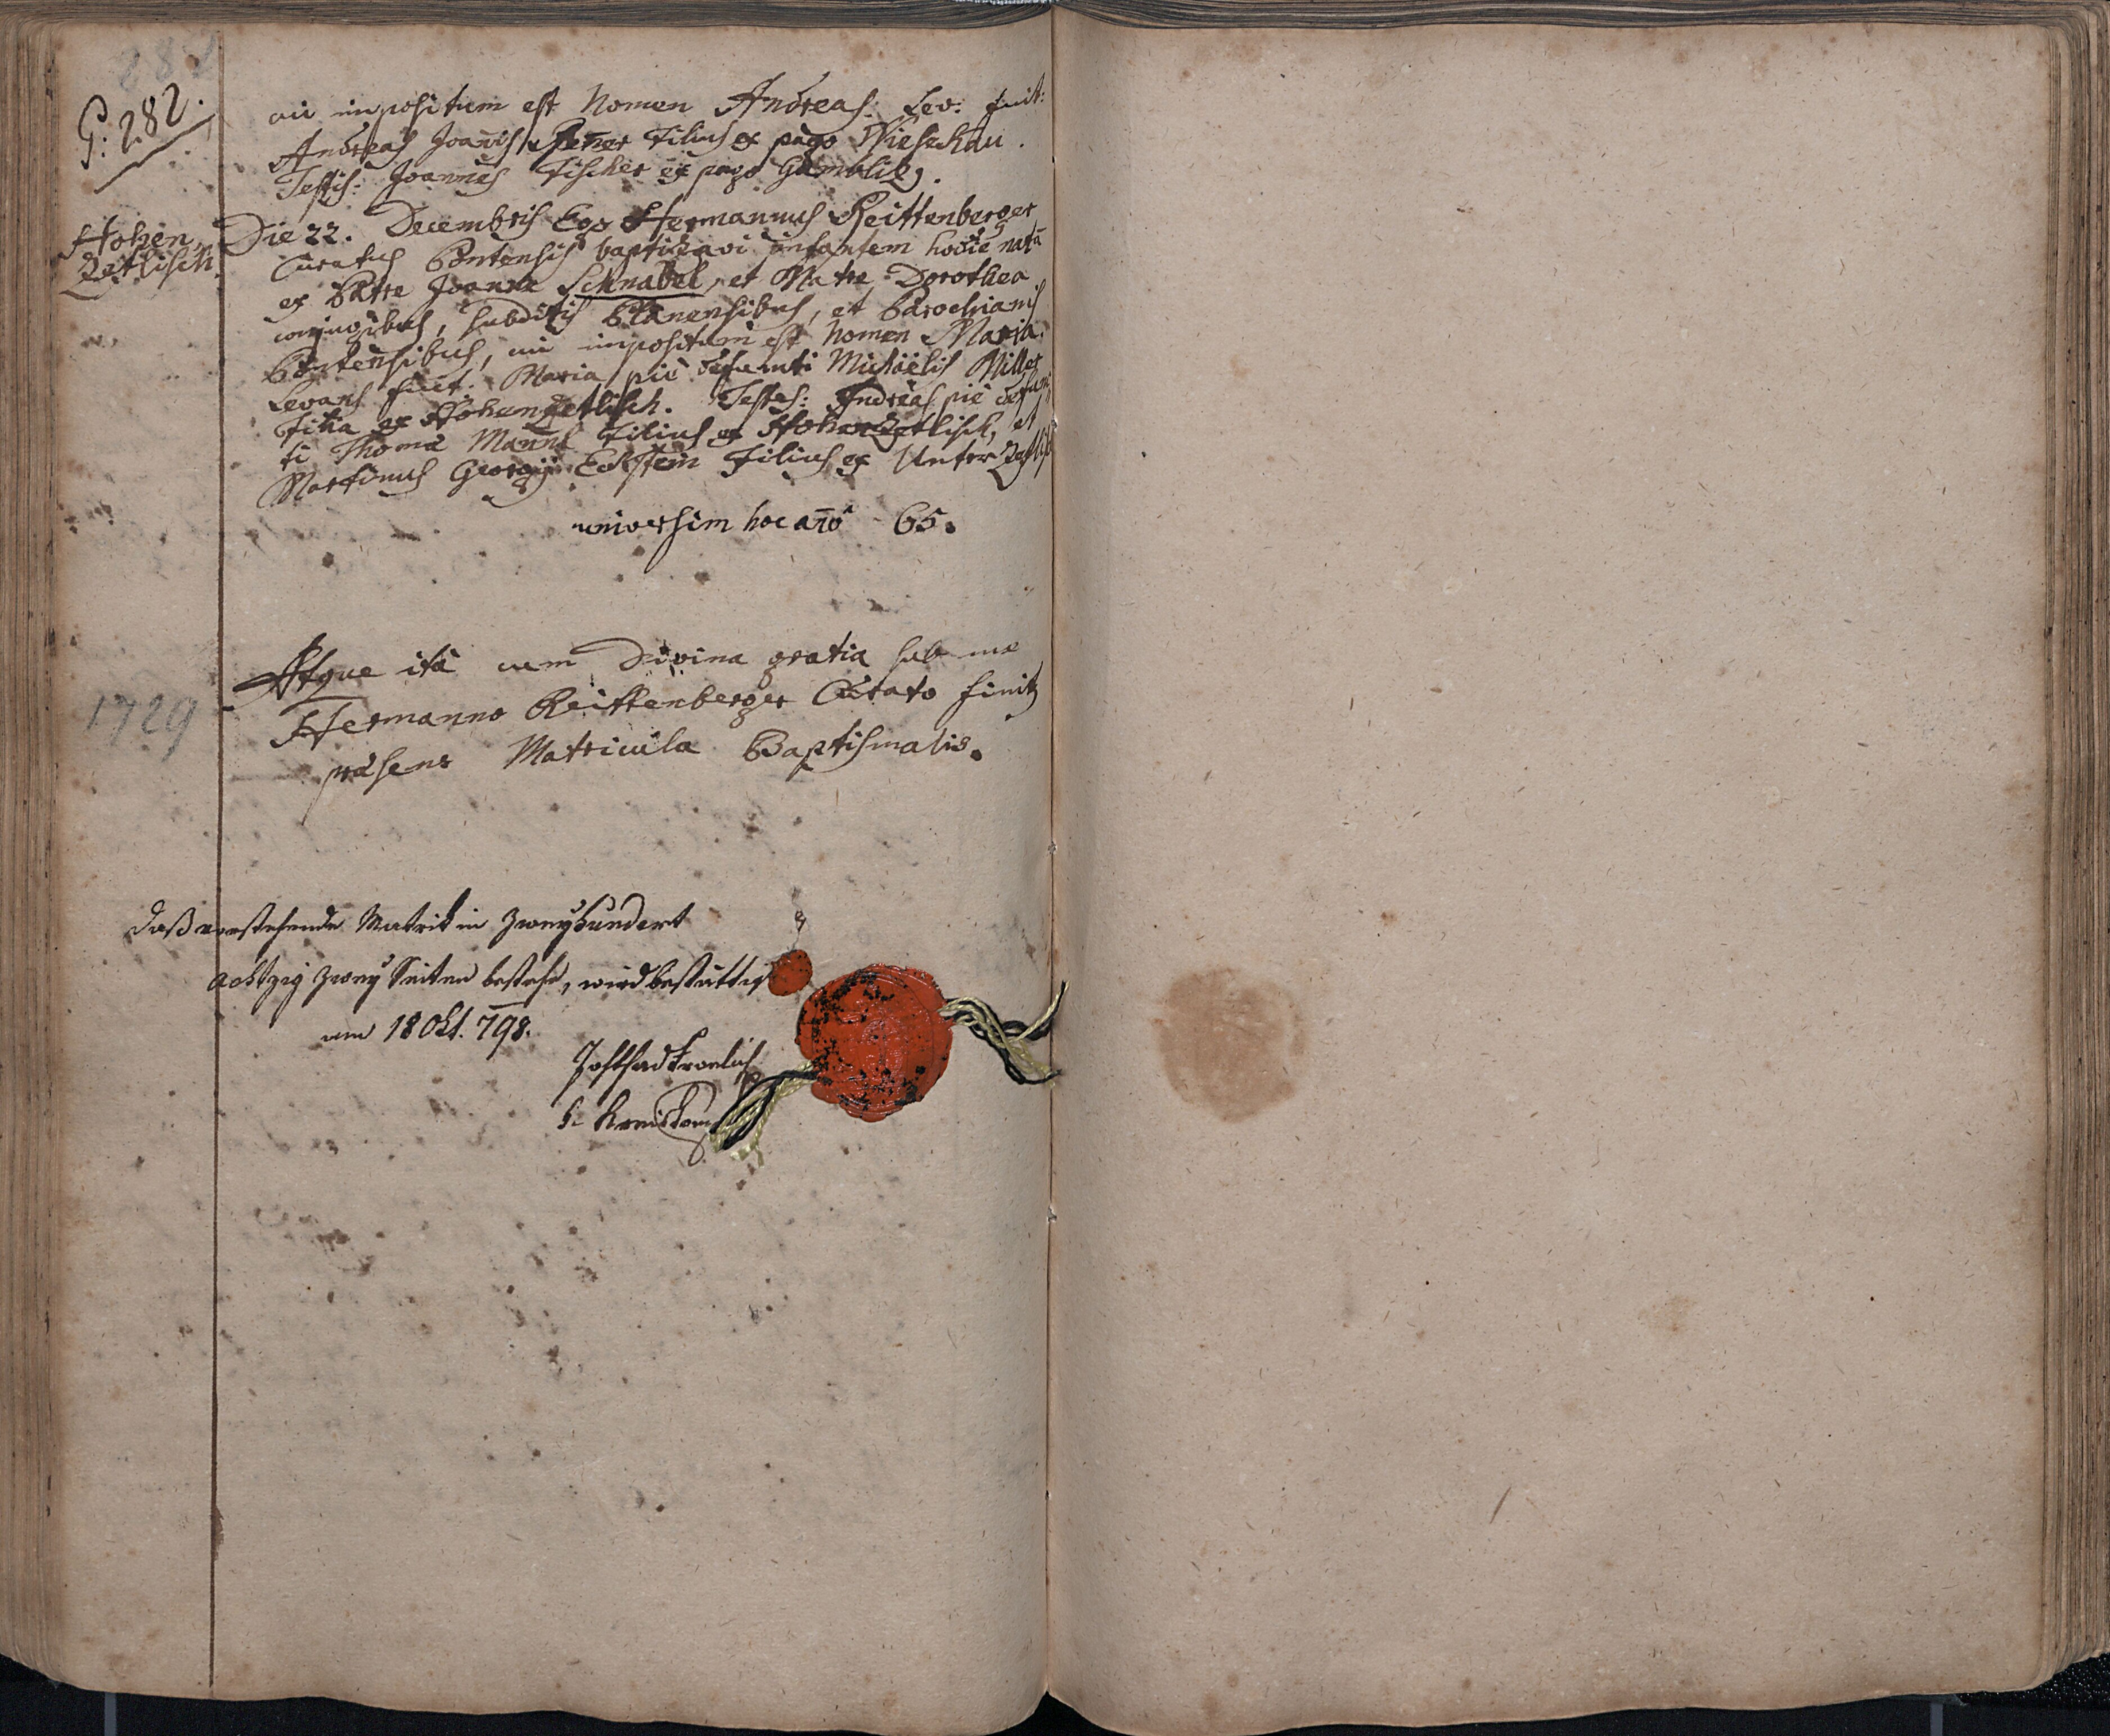 282
P: 282.
cui impositum est Nomen Andreas: Lev: fuit:
Andreas Joañis Filius ex pago
Testis: Joannes Fischer ex pago
Hohen,
Zetlisch.
Die 22. Decembris Ego Hermannus Reittenberger
Curatus baptizavi infantem hodie natã
ex Patre Joanne Schnabel, et Matre Dorothea
conjugibus, subditis Planensibus, et Parochianis
cui impositum est Nomen Maria.
Levans fuit: Maria pie defuncti Michäelis Miller
Filia ex Hohenzetlisch. Testes: Andreas pie defunc
ti Thomæ Filius ex Hohenzetlisch, et
Martinus Georgij Eckstein Filius ex Unter Zetlisch
universim hoc año 65.
1729
Atque ità cum Divina gratia sub me
Hermanno Reittenberger Curato finit
præsens Matricula Baptismalis.
Daß vorstehende Matrik in zweyhundert
achtzig zwey Seiten bestehe, wird bestättigt
am 18 Okt. 798.